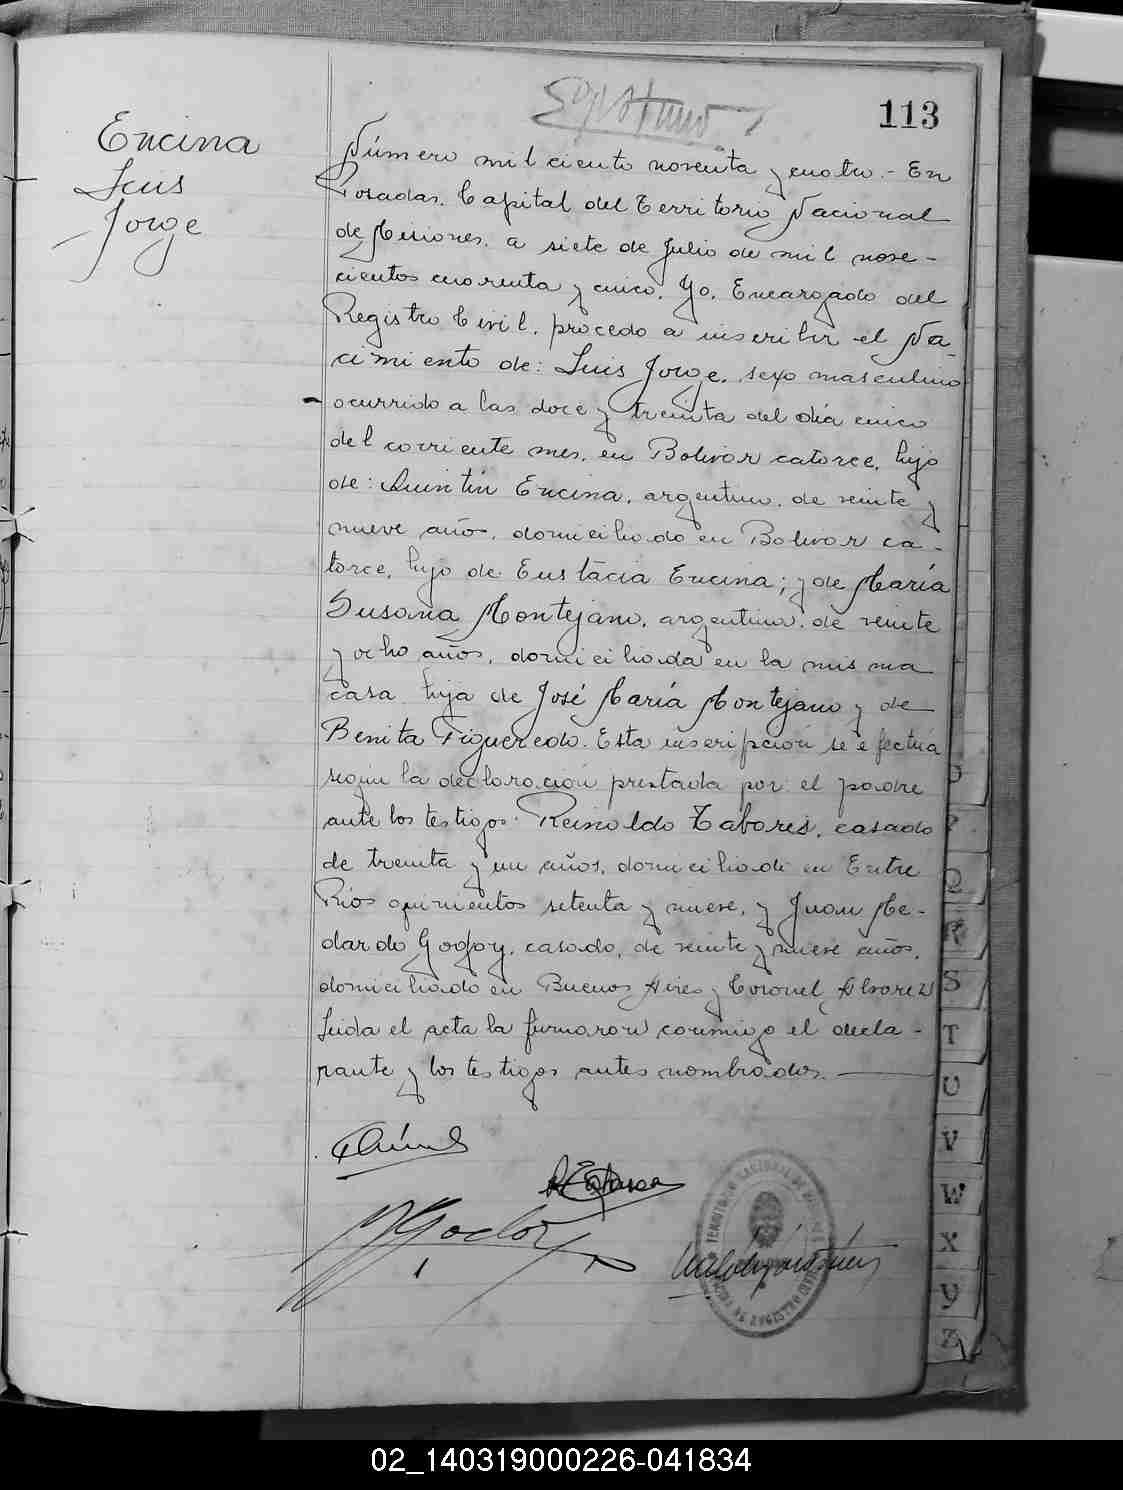 113
Encina
Luis
Jorge
Número mil ciento noventa y cuatro.- En
Posadas, Capital del Territorio Nacional
de Misiones, a siete de Julio de mil nove-
cientos cuarenta y cinco, Yo, Encargado del
Registro Civil, procedo a inscribir el Na-
cimiento de: Luis Jorge, sexo masculino
ocurrido a las doce y treinta del día cinco
del corriente mes, en Bolivar catorce, hijo
de: Quintín Encina, argentino, de veinte y
nueve años, domiciliado en Bolivar ca-
torce, hijo de Eustacia Encina; y de María
Susana Montejano, argentina, de veinte
y ocho años, domiciliada en la misma
casa hija de José María Montejano y de
Benita Figueredo. Esta inscripcion se efectúa
según la declaración prestada por el padre
ante los testigos: Reinoldo Tabores, casado
de treinta y un años, domiciliado en Entre
Ríos quinientos setenta y nueve, y Juan Me-
dardo Godoy, casado, de veinte y nueve años,
domiciliado en Buenos Aires y Coronel Alvarez
Leida el acta la firmaron conmigo el decla-
rante y los testigos antes nombrados.
TERRITORIO NACIONAL DE MISIONES
Q
R
S
T
U
V
W
X
Y
Z
02_140319000226-041834